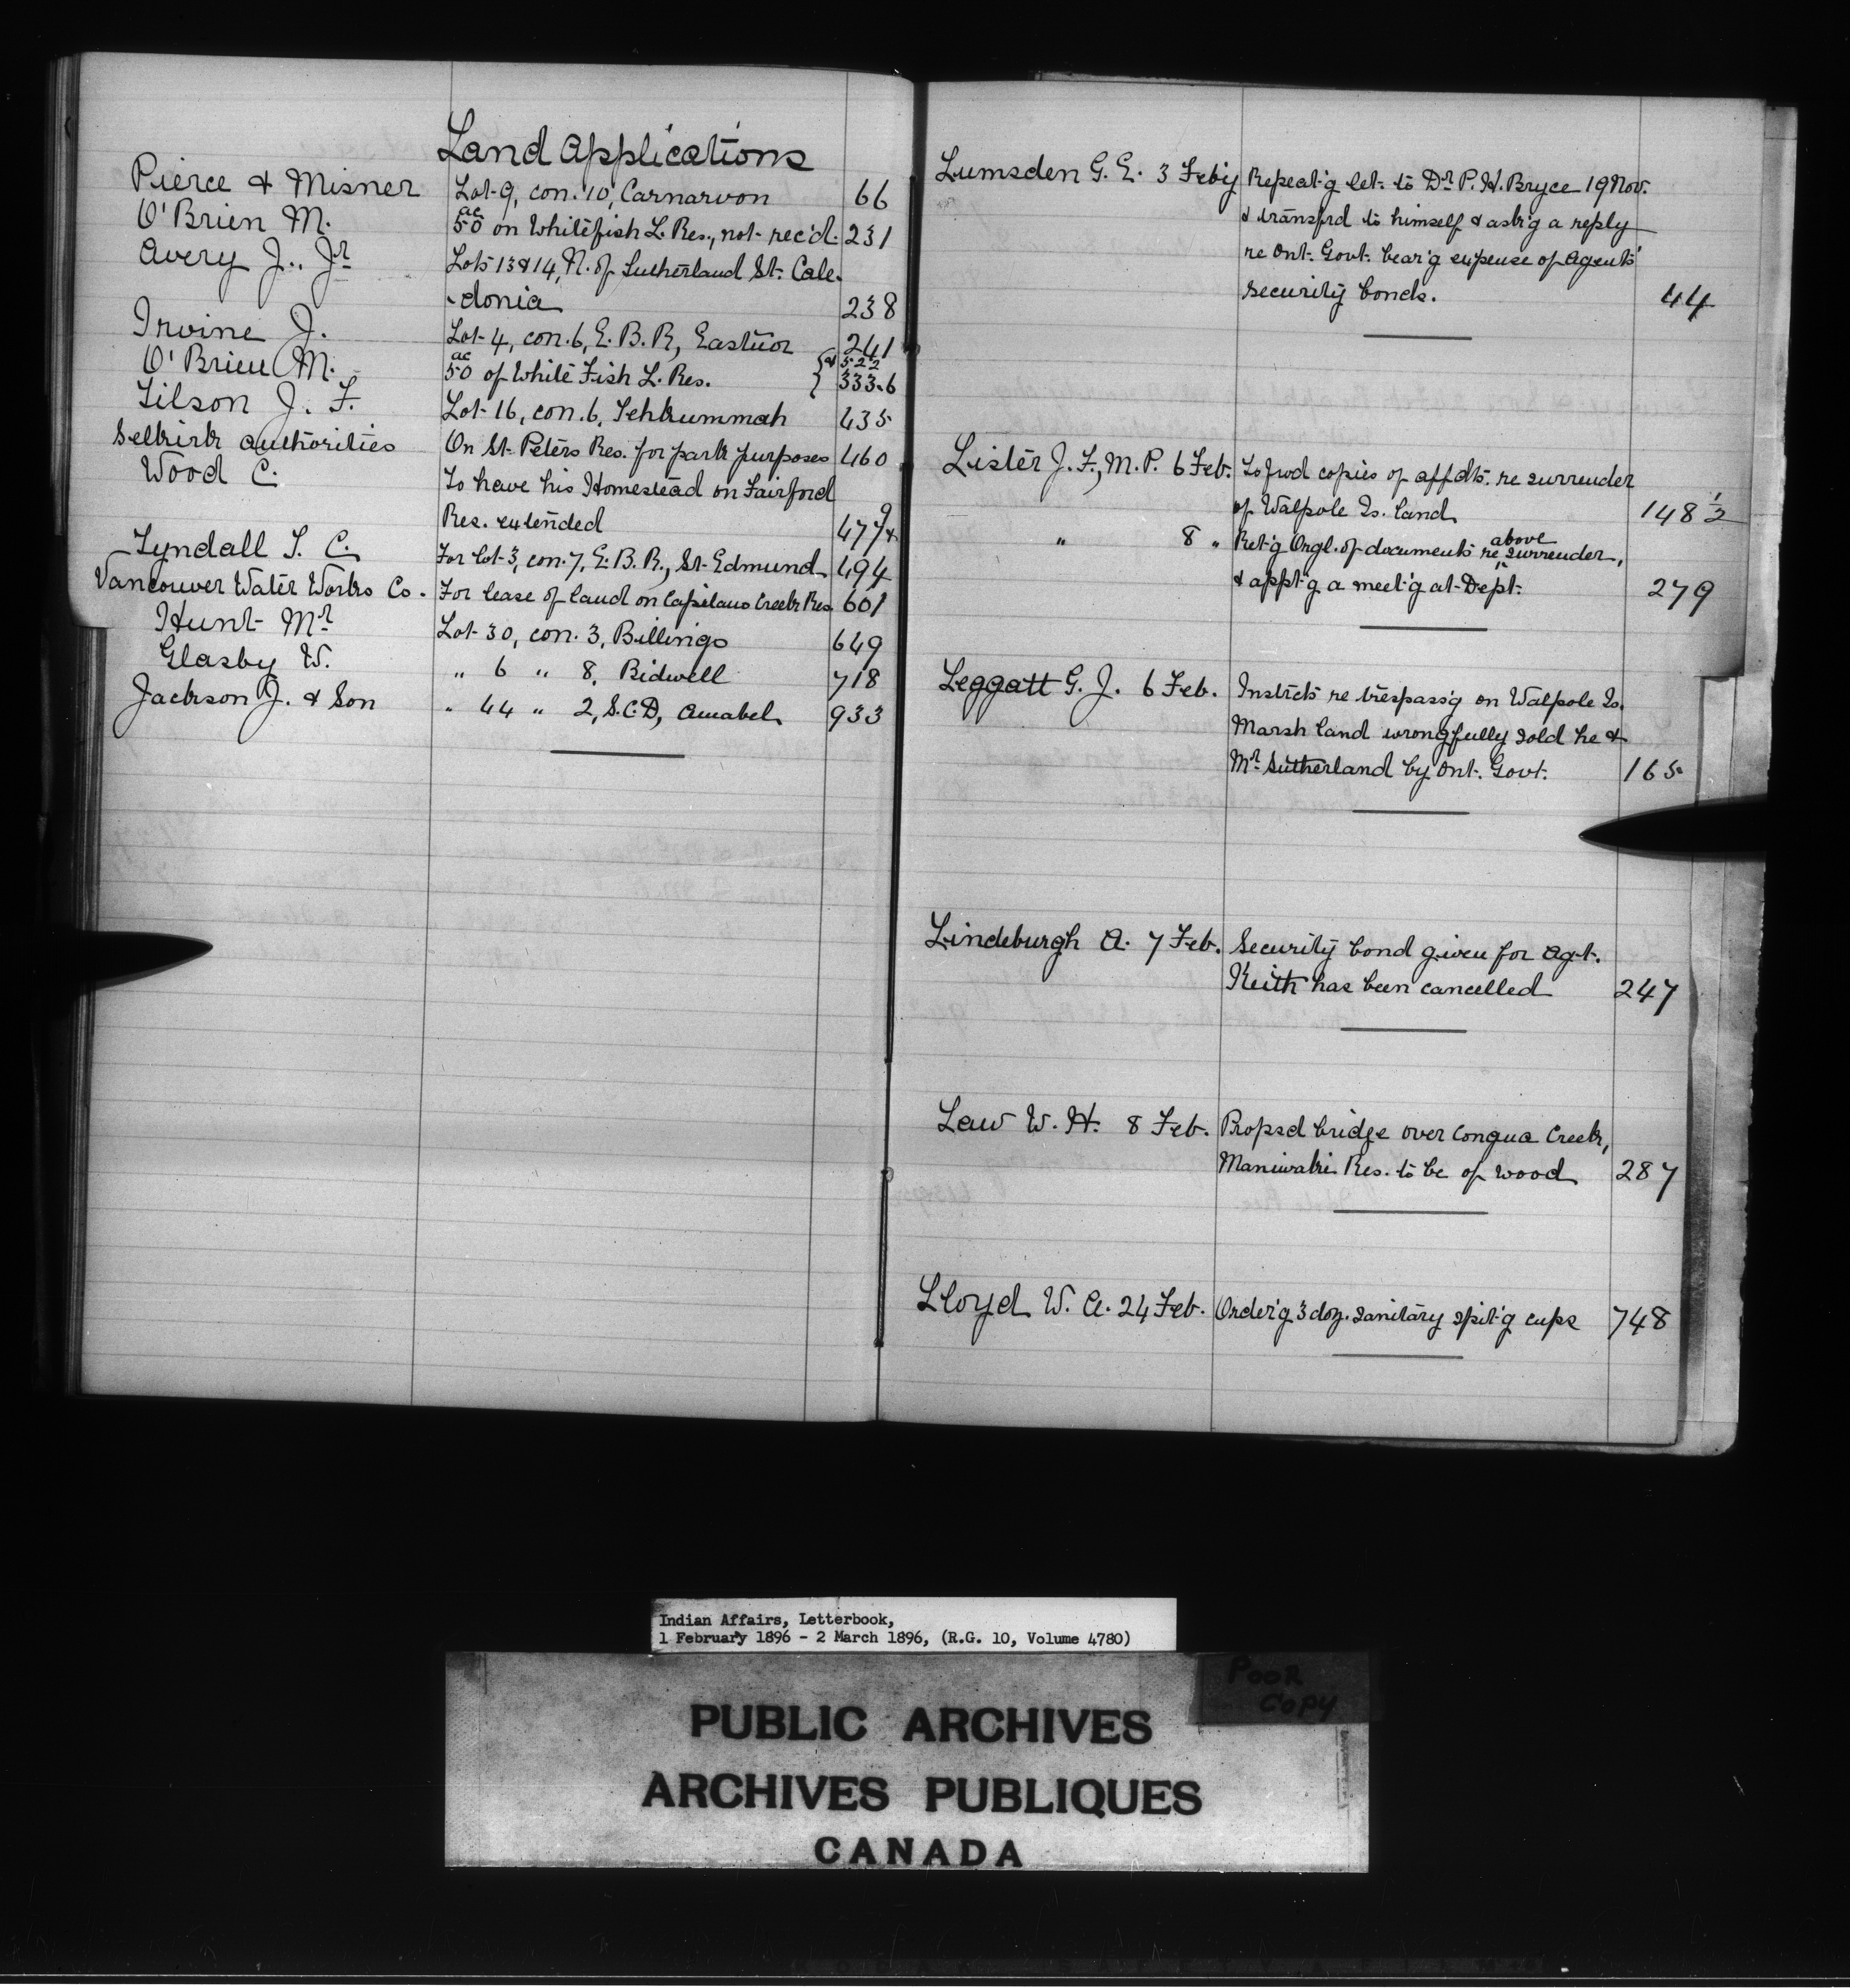 Land Applications
Pierce & Misner Lot 9, con. 10, Carnarvon 66
O'Brien M. 50 ac on Whitefish L. Res., not rec'd. 231
Avery J., Jr Lots 13 & 14, N. of Sutherland St. Cale-
-donia 238
Irvine J. Lot 4, con. 6, E. B. R, Eastnor 241
O'Brien M. 50 ac of White Fish L. Res. { & 522 333-6
Tilson J. F. Lot 16, con. 6, Tehkummah 435
Selkirk authorities On St. Peters Res. for park purposes 460
Wood C. To have his Homestead on Fairford
Res. extended 477 & 9
Tyndall T. C. For lot 3, con. 7, E. B. R., St. Edmund 494
Vancouver Water Works Co. For lease of land on Capilano Creek Res 601
Hunt Mr Lot 30, con. 3, Billings 649
Glasby W. " 6 " 8, Bidwell 718
Jackson J. & Son " 44 " 2, S.C.D, Amabel 933
Lumsden G. E. 3 Feby Repeat'g let. to Dr P. H. Bryce 19 Nov.
& transfrd to himself & ask'g a reply
re Ont. Govt. bear'g expense of Agents'
security bonds. 44
Lister J. F., M. P. 6 Feb. To fwd copies of affdts. re surrender
of Walpole Is. land 148 1/2
" 8 " Ret'g Orgl. of documents re above surrender,
& appt'g a meet'g at Dept. 279
Leggatt G. J. 6 Feb. Instcts re trespass'g on Walpole Is.
Marsh land wrongfully sold he &
Mr Sutherland by Ont. Govt. 165
Lindeburgh A. 7 Feb. Security bond given for Agt.
Keith has been cancelled 247
Law W. H. 8 Feb. Propsd bridge over Congua Creek,
Maniwaki Res. to be of wood 287
Lloyd W. A. 24 Feb. Order'g 3 doz. sanitary spit'g cups 748
Indian Affairs, Letterbook,
1 February 1896 - 2 March 1896, (R.G. 10, Volume 4780)
Poor
Copy
PUBLIC ARCHIVES
ARCHIVES PUBLIQUES
CANADA